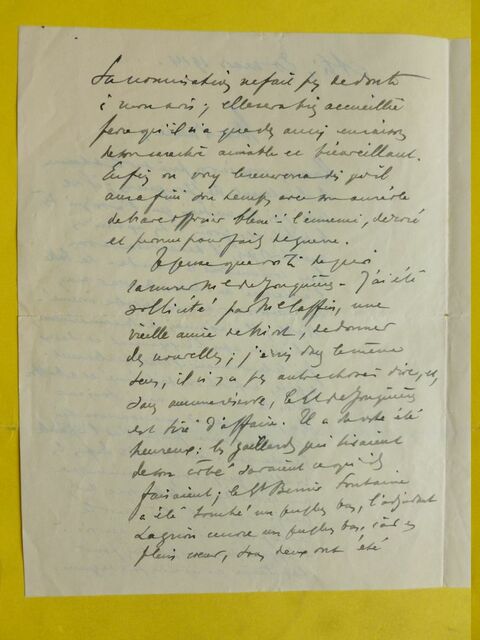 Sa nomination ne fait pas de doute
à mon avis ; elle sera bien accueillie
parce qu'il n'a que des amis, en raison
de son caractère aimable et bienveillant.
Enfin on vous le renverra dès qu'il
aura fini son temps avec son auréole
de brave officier blessé à l'ennemi, décoré
et promu pour faits de guerre.
Je pense que voilà de quoi
rassurer Me de Jonquières - J'ai été
sollicité par Me Laffin, une
vieille amie de Niort, de donner
des nouvelles ; j'écris dans le même
sens, il n'y a pas autre chose à dire, et,
sans , le Lt de Jonquières
est tiré d'affaire. Il a été
heureux : les gaillards qui tiraient
de son côté savaient ce qu'ils
faisaient ; le Lt Fontaine
a été touché un peu plus bas, l'adjudant
encore un peu plus bas, en
plein cœur, tous deux ont été